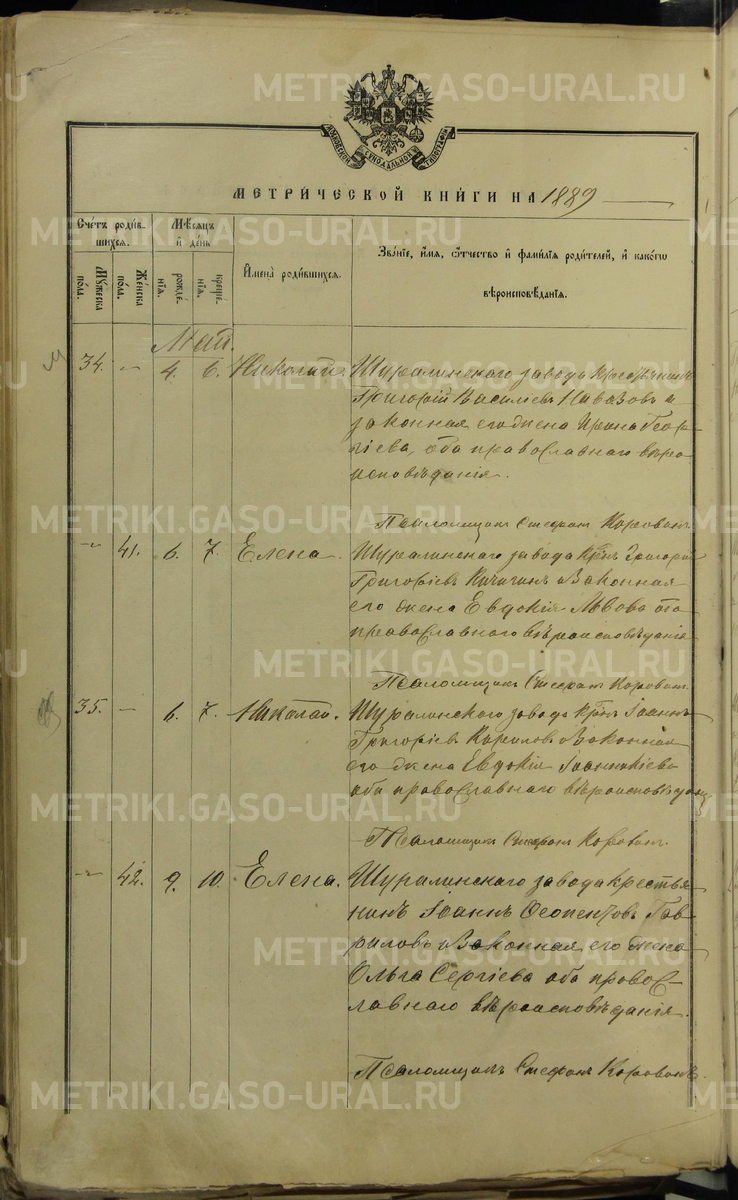 МЕТРИЧЕСКОЙ КНИГИ НА 1889
Счетъ родив-
шихся.
Мѣсяцъ
и день
Мужеска
пола.
Женска
пола.
рожде-
нія.
креще-
нія.
Имена родившихся.
Званіе, имя, отчество и фамилія родителей, и какого
вѣроисповѣданія.
Май.
34. — 4. 6. Николай. Шуралинскаго завода
Григорій Васильевъ и
законная его жена Ирина Геор-
гіева, оба православнаго вѣро
исповѣданія.
Псаломщикъ Стефанъ Коровинъ
— 41. 6. 7. Елена. Шуралинскаго завода Крⷭ҇нъ Григорій
Григорьевъ Кичигинъ и Законная
его жена Евдокія Львова оба
православнаго вѣроисповѣданія
Псаломщикъ Стефанъ Коровинъ
35. — 6. 7. Николай. Шуралинскаго завода Іоаннъ
Григорьевъ и Законная
его жена Евдокія Іоанникіева
оба православнаго вѣроисповѣданія
Псаломщикъ Стефанъ Коровинъ.
— 42. 9. 10. Елена. Шуралинскаго завода крестья
нинъ Іоаннъ Гав-
риловъ и Законная его жена
Ольга Сергіева оба право С-
лавнаго вѣроисповѣданія.
Псаломщикъ Стефанъ Коровинъ
METRIKI.GASO-URAL.RU